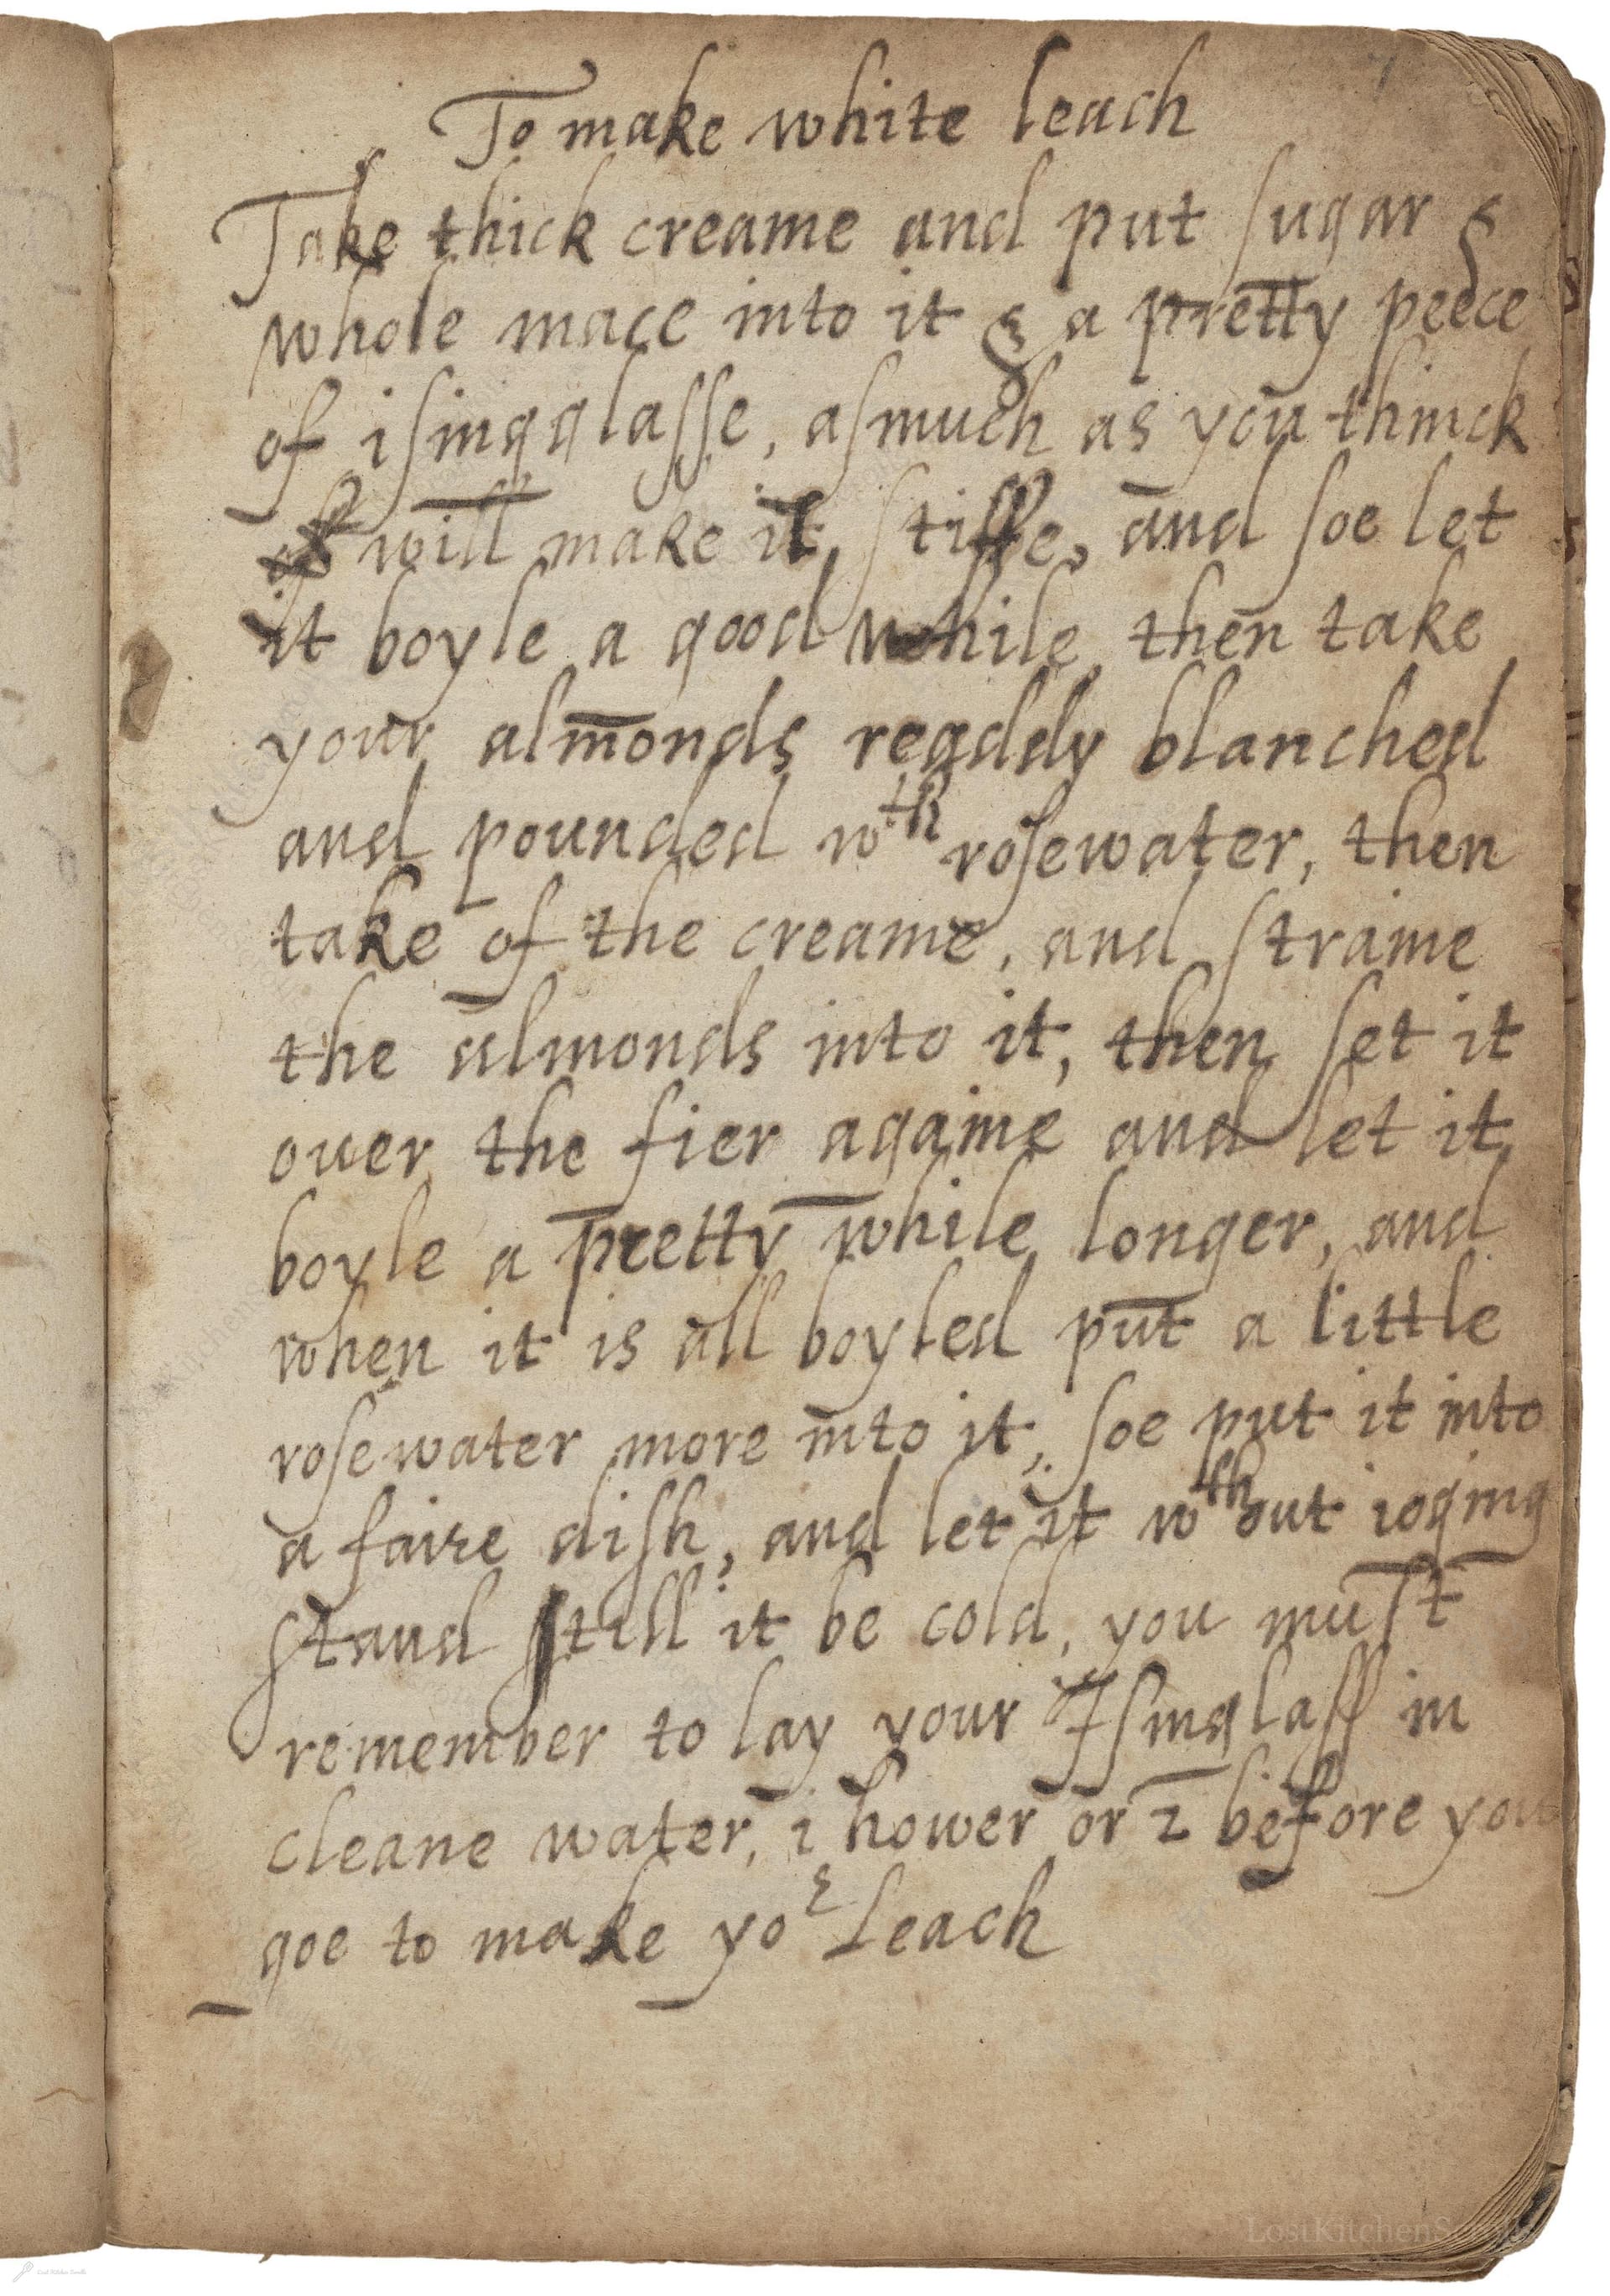 To make white leach
Take thick creame and put sugar &
whole mace into it & a pretty peece
of isingglasse, asmuch as you thinck
will make it stiffe, and soe let
it boyle a good while then take
your almonds readdy blanched
and pounded wth rosewater, then
take of the creame, and straine
the almonds into it, then set it
ouer the fier againe and let it
boyle a pretty while longer, and
when it is all boyled put a little
rosewater more into it, soe put it into
a faire dish, and let it wthout ioging
stand still it be cold, you must
remember to lay your Isinglass in
cleane water, i hower or 2 before you
goe to make yor Leach
LostKitchenScrolls